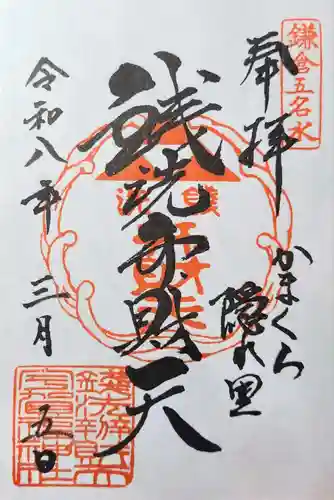 鎌倉五名水
奉拝
かまくら
隠れ里
銭洗弁財天
令和八年三月五日